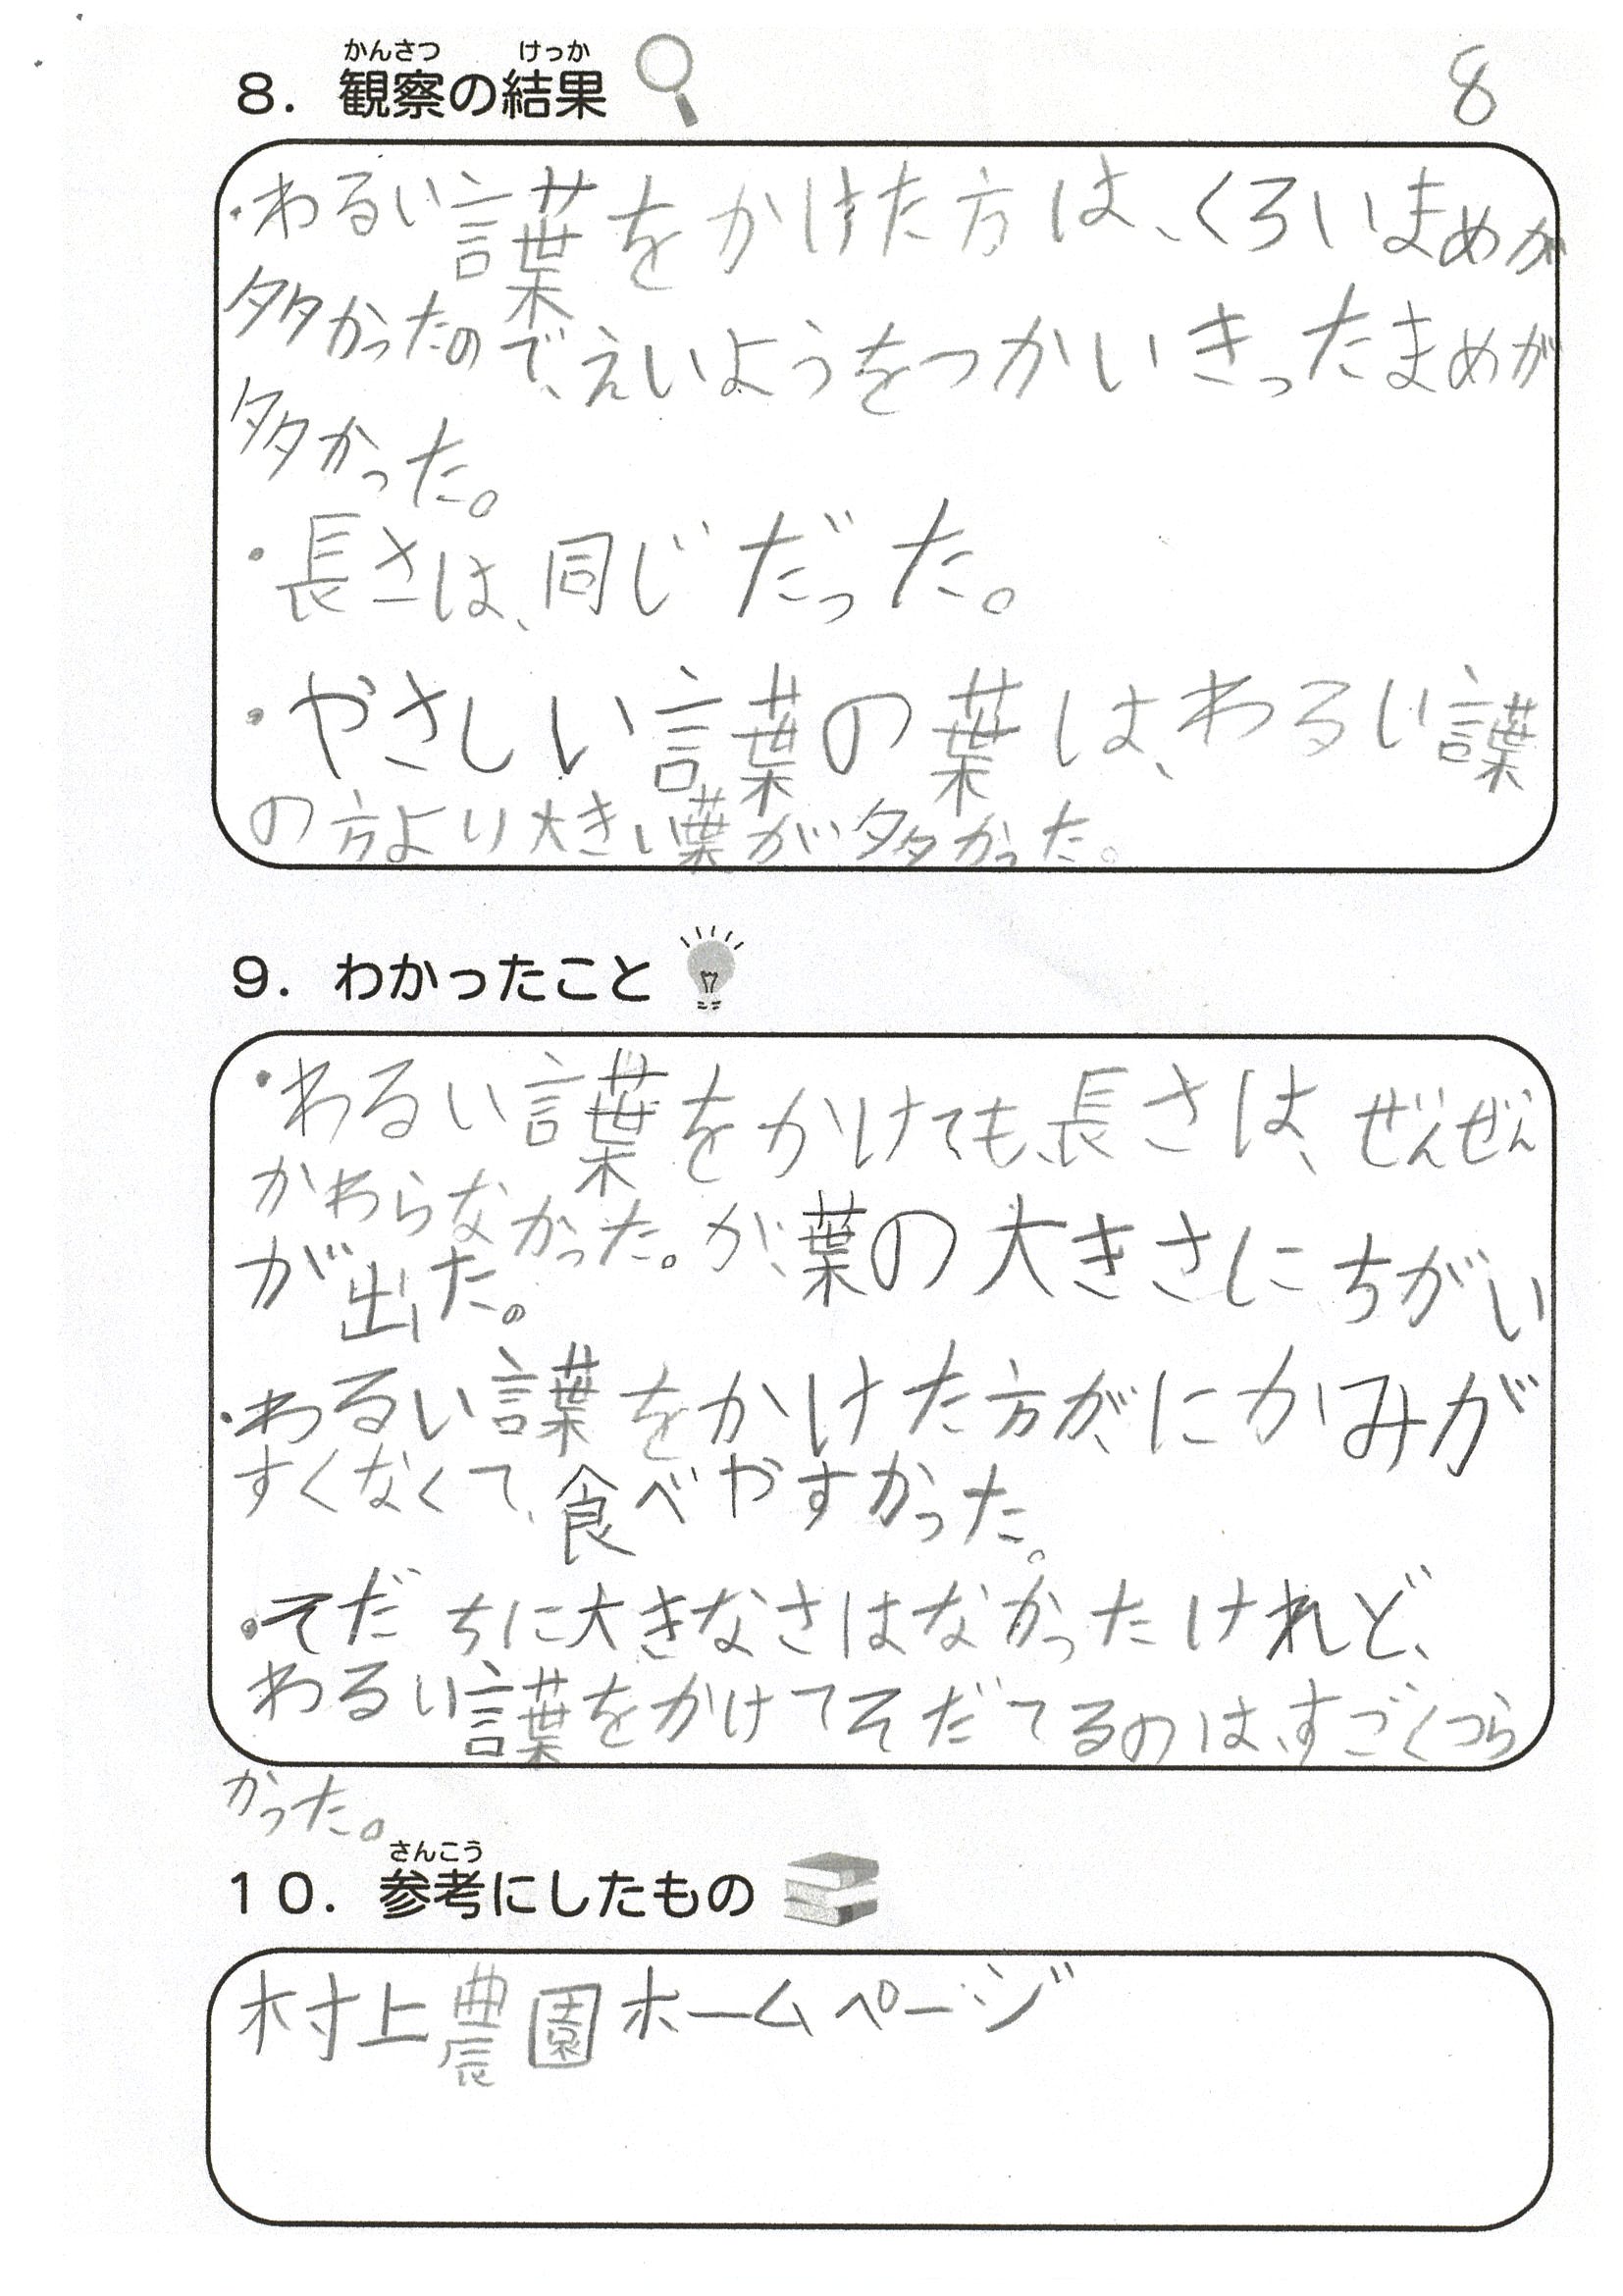 かんさつ けっか
8. 観察の結果
8
・わるい言葉をかけた方は、くろいまめが
多かったので、えいようをつかいきったまめが
多かった。
・長さは、同じだった。
・やさしい言葉の葉は、わるい言葉
の方より大きい葉が多かった。
9. わかったこと
・わるい言葉をかけても、長さは、ぜんぜん
かわらなかった。が、葉の大きさにちがい
が出た。
・わるい言葉をかけた方が、にがみが
すくなくて、食べやすかった。
・そだちに大きなさはなかったけれど、
わるい言葉をかけてそだてるのは、すごくつら
かった。
さんこう
10. 参考にしたもの
村上農園ホームページ